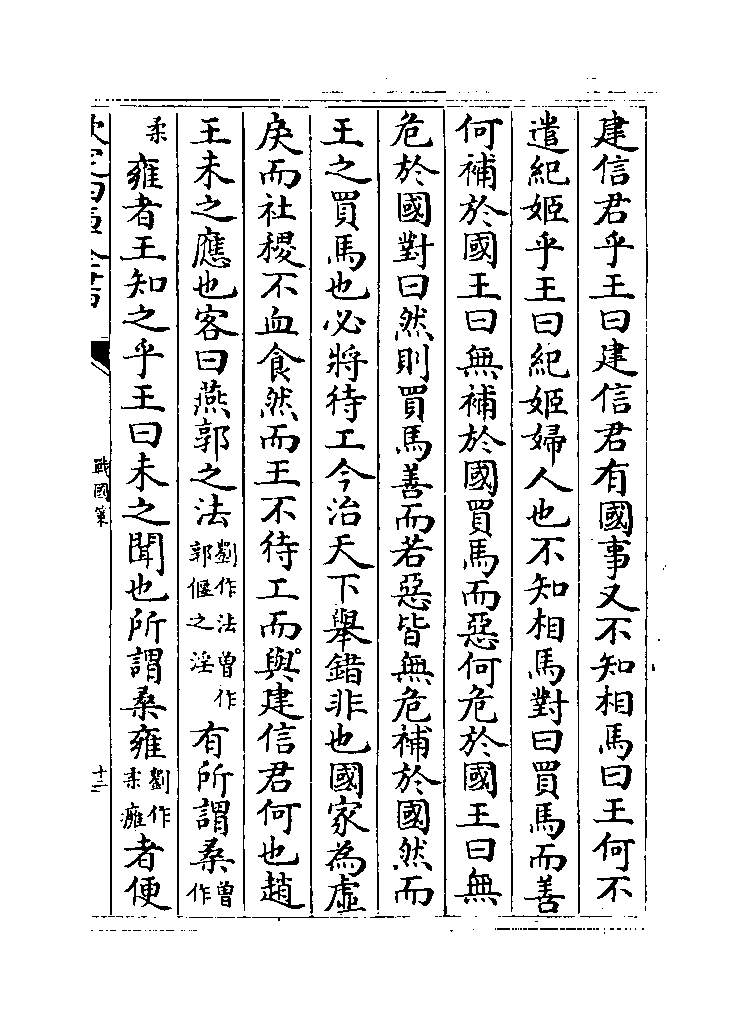 建信君乎王曰建信君有國事又不知相馬曰王何不
遣紀姬乎王曰紀姬婦人也不知相馬對曰買馬而善
何補於國王曰無補於國買馬而惡何危於國王曰無
危於國對曰然則買馬善而若惡皆無危補於國然而
王之買馬也必將待工今治天下舉錯非也國家為虛
戾而社稷不血食然而王不待工而與建信君何也趙
王未之應也客曰燕郭之法劉作法曾作郭偃之淫有所謂桑曾作
柔雍者王知之乎王曰未之聞也所謂桑雍劉作柔癰者便
欽定四庫全書
戰國策
十二